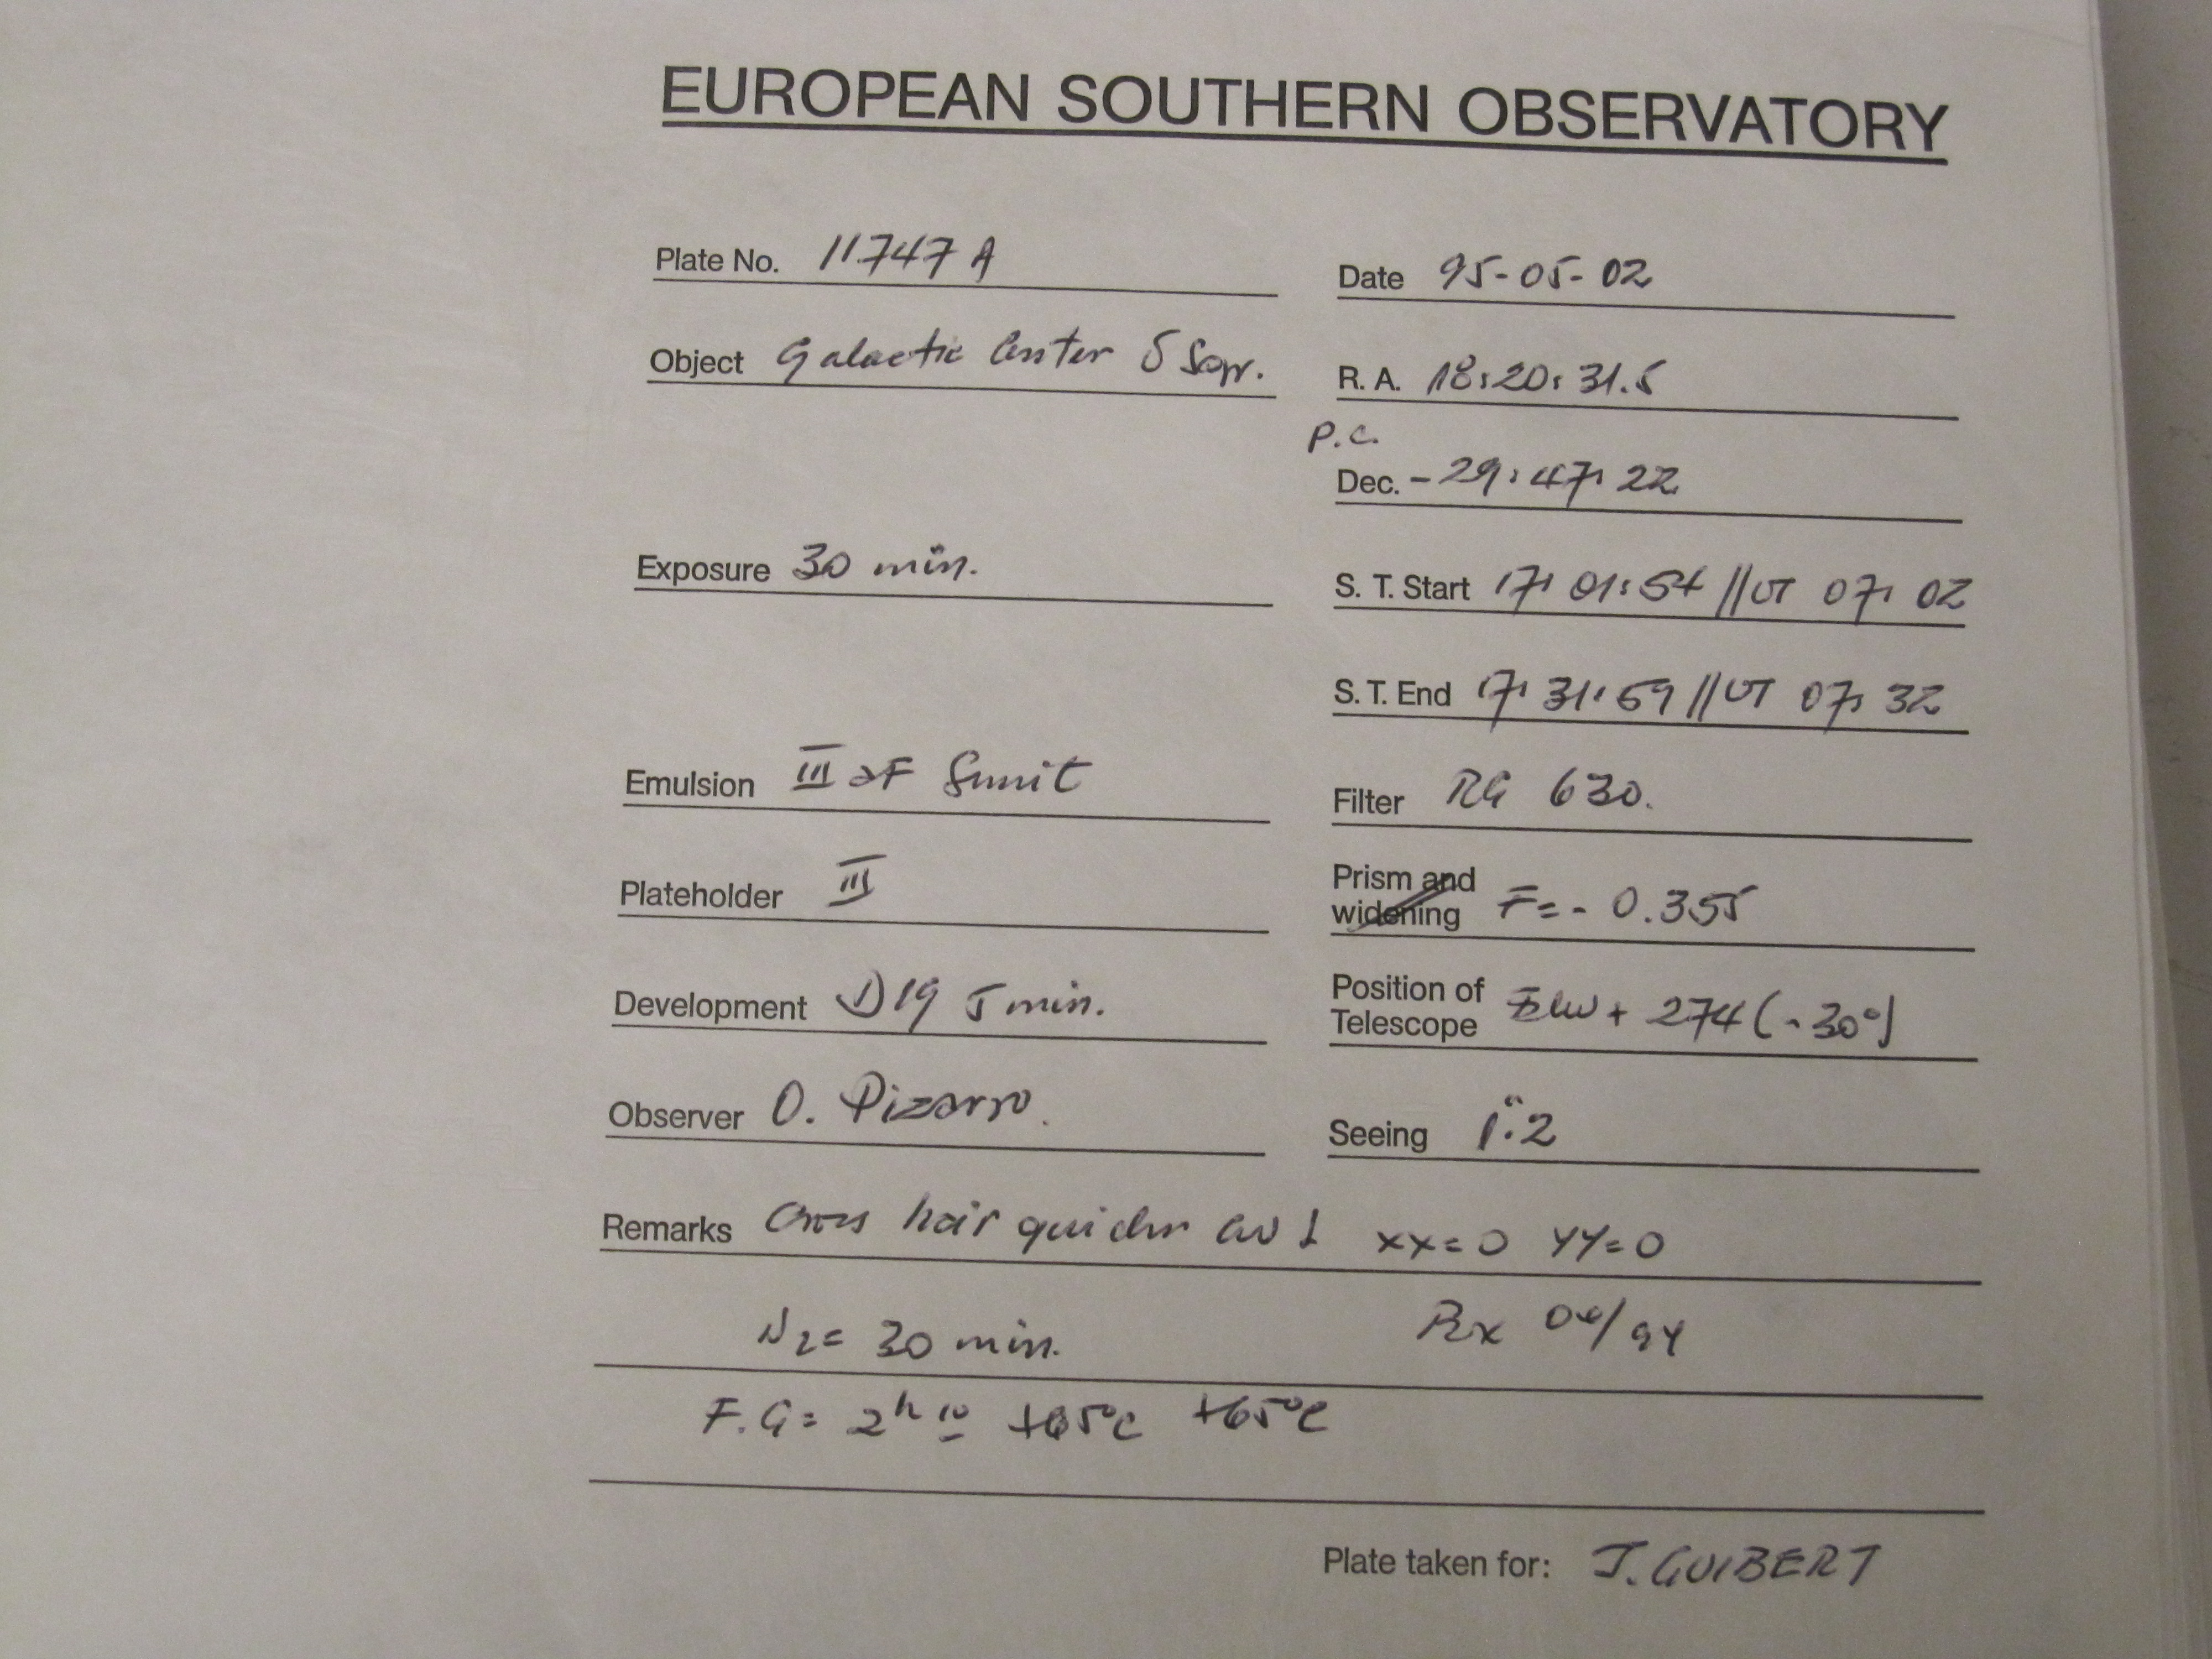 EUROPEAN SOUTHERN OBSERVATORY
Plate No. 11747 A
Date 95-05-02
Object Galactic Center δ
R. A. 18:20:31.5
P.C.
Dec. -29:47:22
Exposure 30 min.
S. T. Start 17:01:54 //UT 07:02
S. T. End 17:31:59 //UT 07:32
Emulsion III aF
Filter RG 630.
Plateholder III
Prism and widening F=- 0.355
Development D19 5 min.
Position of Telescope + 274 (-30°)
Observer O. Pizarro.
Seeing 1".2
Remarks Cross hair guider xx=0 YY=0
N2= 30 min.
F.G= 2h 10 +65°C +65°C
Plate taken for: J. GUIBERT